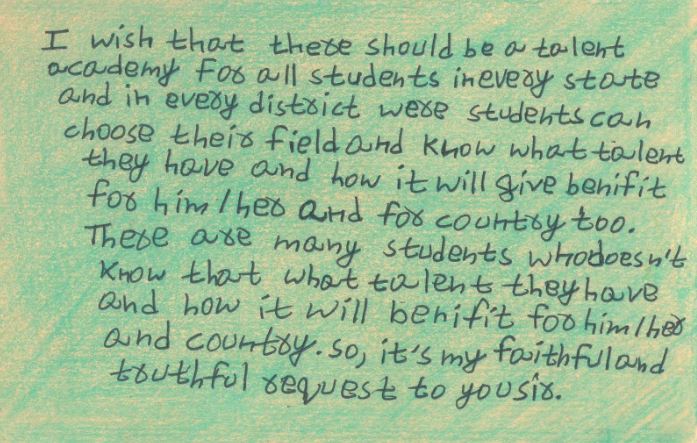 I wish that there should be a talent
academy for all students in every state
and in every district were students can
choose their field and know what talent
they have and how it will give benifit
for him/her and for country too.
There are many students who doesn't
know that what talent they have
and how it will benifit for him/her
and country. so, it's my faithful and
truthful request to you sir.